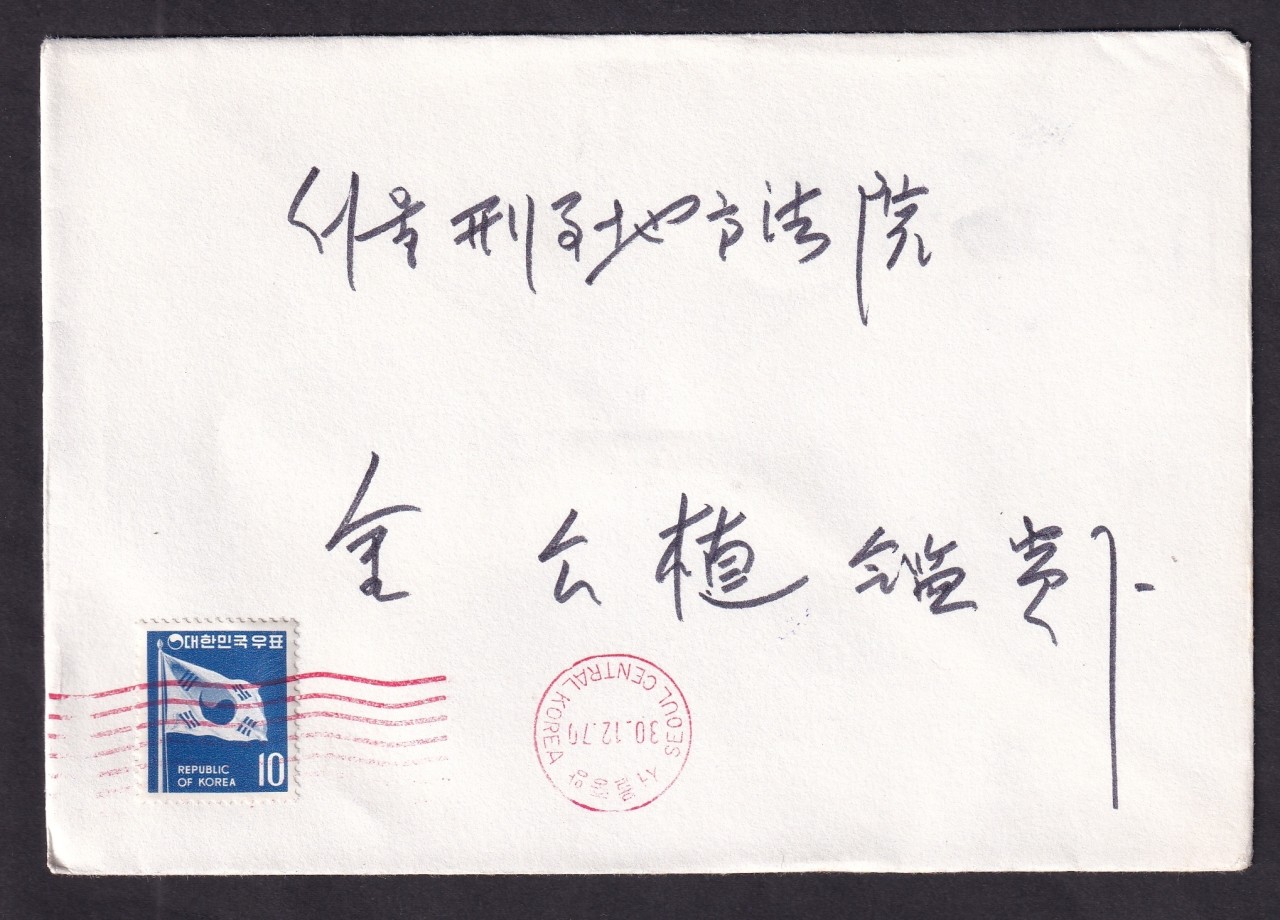 서울刑事地方法院
金 公植 鑑 貴下
대한민국우표
REPUBLIC
OF KOREA
10
SEOUL CENTRAL KOREA
30.12.70